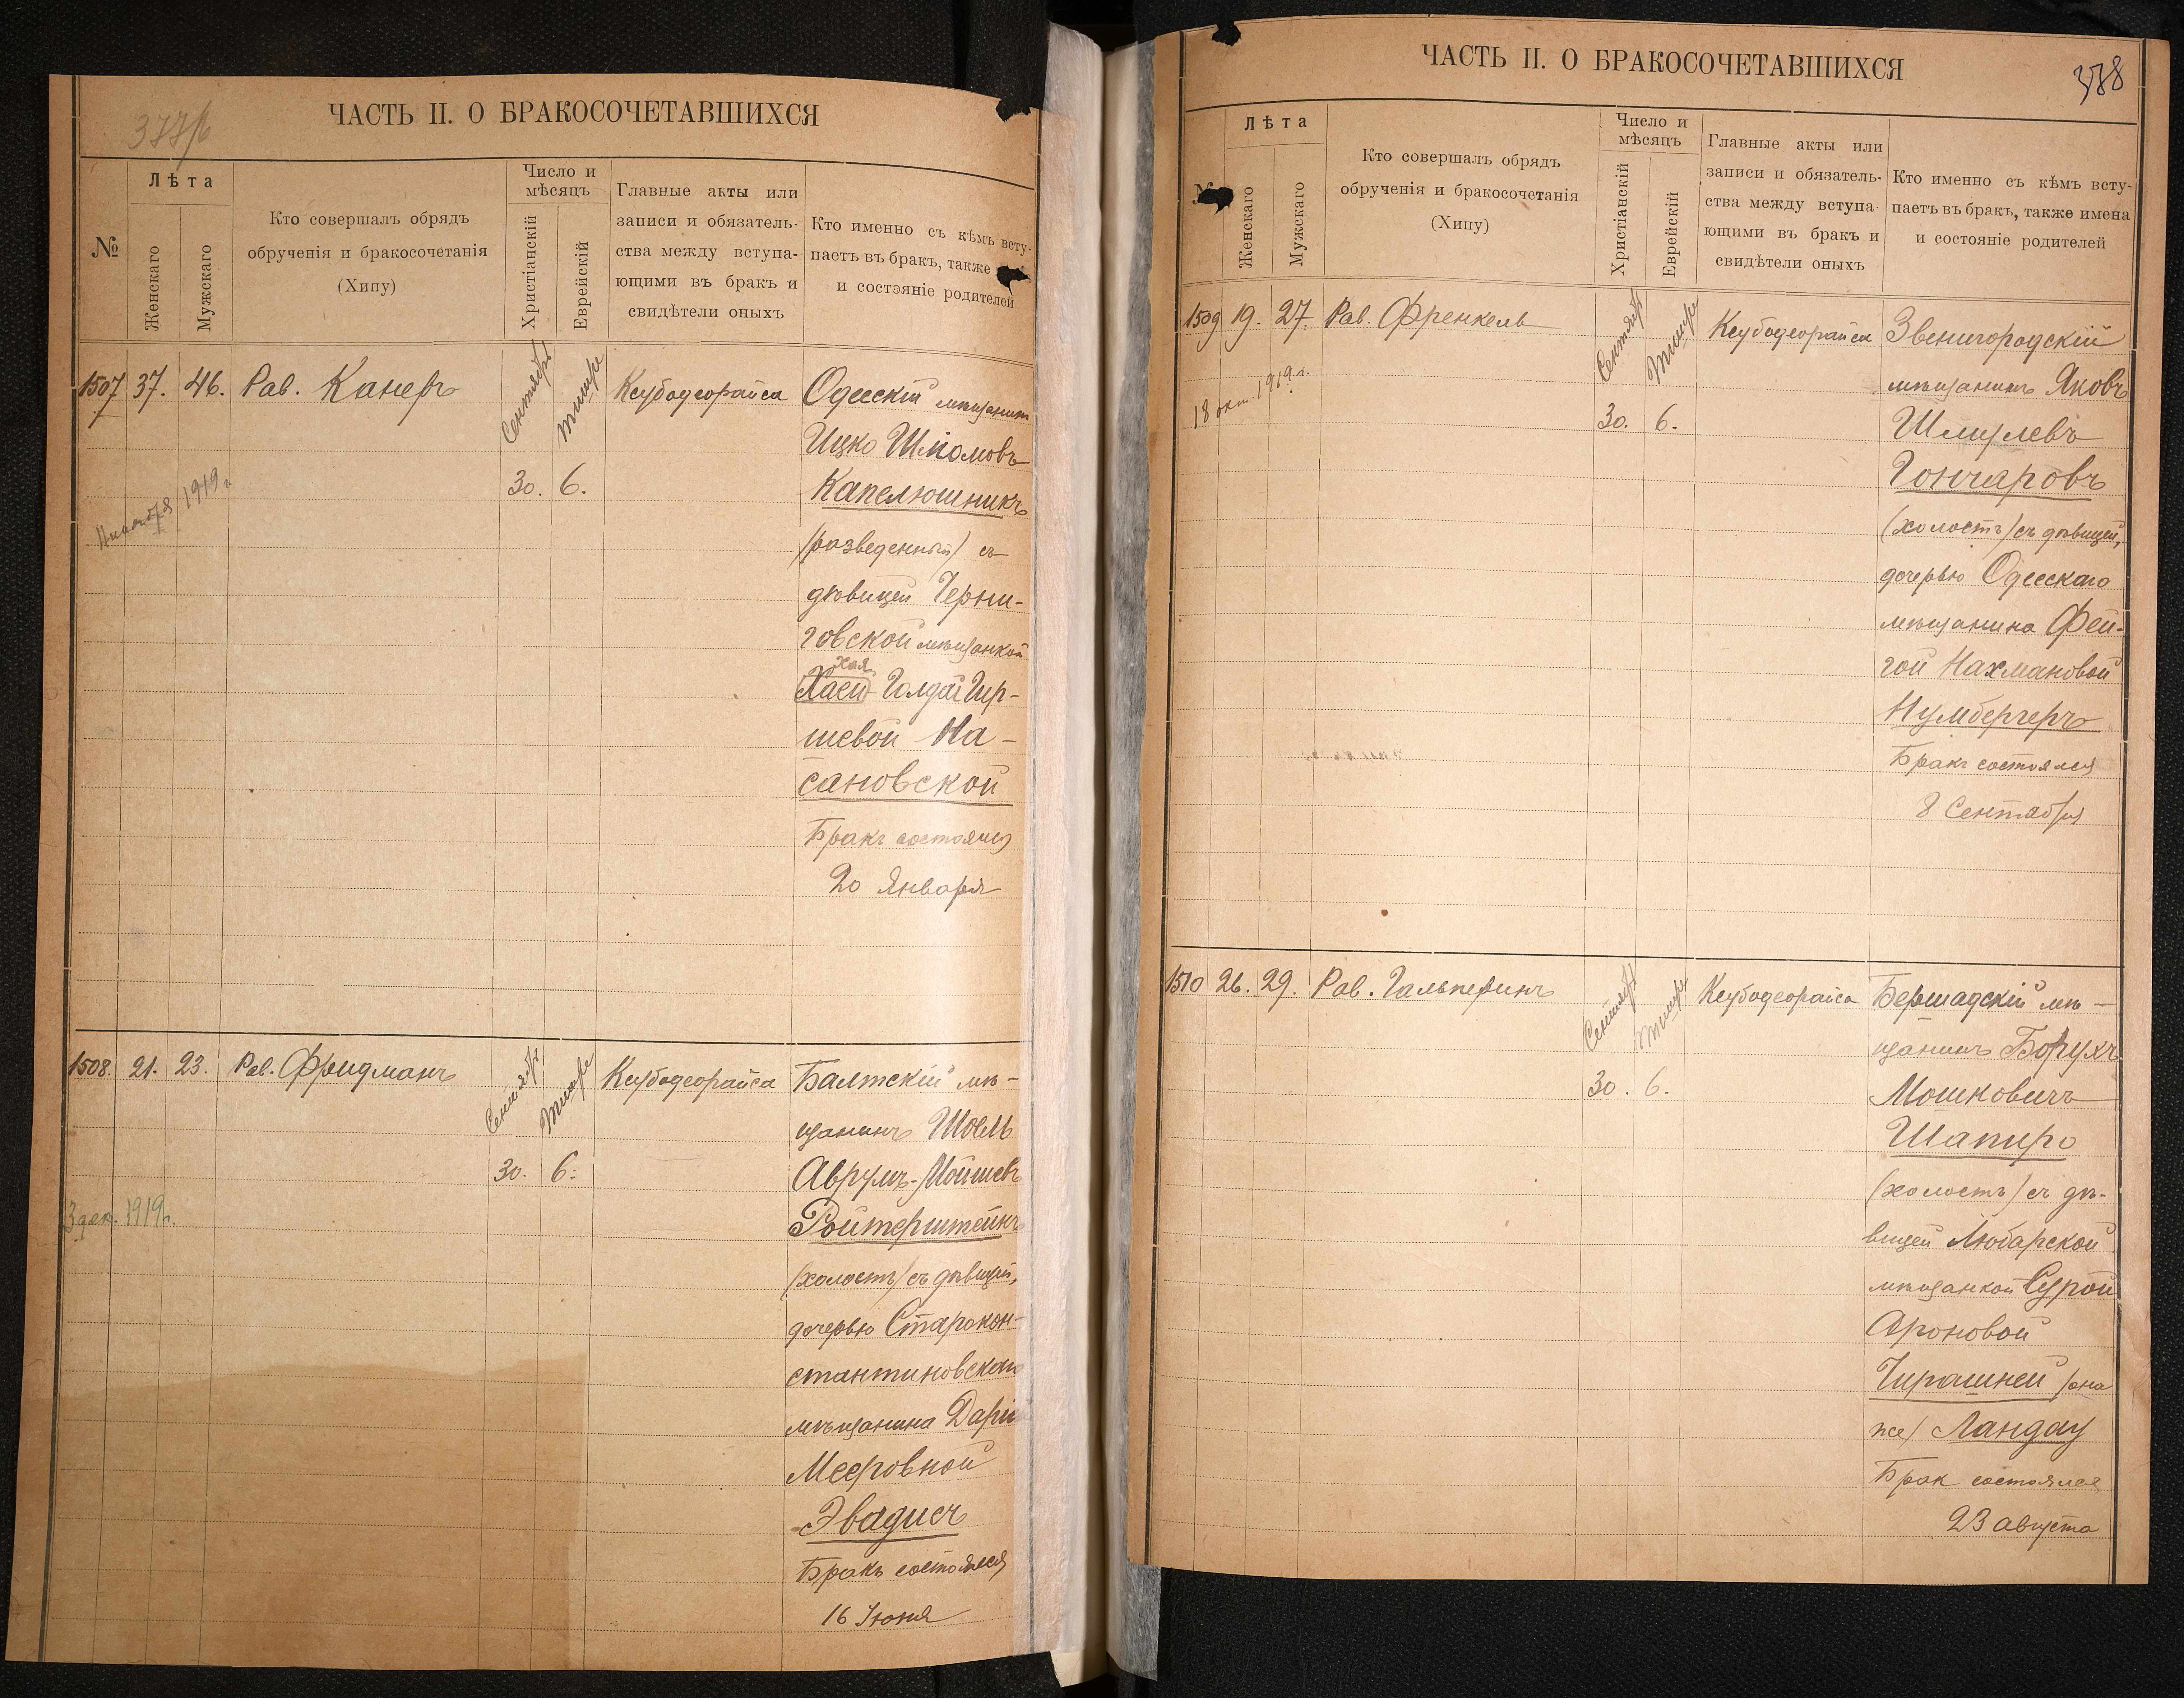 377/б
ЧАСТЬ II. О БРАКОСОЧЕТАВШИХСЯ
№
Лѣта
Женскаго
Мужскаго
Кто совершалъ обрядъ
обрученія и бракосочетанія
(Хипу)
Число и
мѣсяцъ
Христіанскій
Еврейскій
Главные акты или
записи и обязатель-
ства между вступа-
ющими въ бракъ и
свидѣтели оныхъ
Кто именно съ кѣмъ всту-
паетъ въ бракъ, также
и состояніе родителей
1507 37. 46. Рав. Канеръ
Сентябрь
Тишре
30. 6.
Ксубодеорайса
1919 г.
Одесскій мѣщанинъ
Ицко Шліомовъ
Капелюшникъ
(разведенный) съ
дѣвицей Черни-
говской мѣщанкой
Хая
Хаей-Голдой Гир-
шевой На-
сановской
Бракъ состоялся
20 Января
1508. 21. 23. Рав. Фридманъ
Сентябрь
Тишре
30. 6.
Ксубодеорайса
3 дек. 1919 г.
Балтскій мѣ-
щанинъ Шоель
Аврумъ-Мойшевъ
Ройтерштейнъ
(холостъ) съ дѣвицей,
дочерью Старокон-
стантиновскаго
мѣщанина Дарьи
Мееровной
Эвадисъ
Бракъ состоялся
16 Іюня
ЧАСТЬ II. О БРАКОСОЧЕТАВШИХСЯ
378
Лѣта
Женскаго
Мужскаго
Кто совершалъ обрядъ
обрученія и бракосочетанія
(Хипу)
Число и
мѣсяцъ
Христіанскій
Еврейскій
Главные акты или
записи и обязатель-
ства между вступа-
ющими въ бракъ и
свидѣтели оныхъ
Кто именно съ кѣмъ всту-
паетъ въ бракъ, также имена
и состояніе родителей
1509 19. 27. Рав. Френкель
Сентябрь
Тишре
30. 6.
Ксубодеорайса
18 окт. 1919 г.
Звенигородскій
мѣщанинъ Яковъ
Шмулевъ
Гончаровъ
(холостъ) съ дѣвицей,
дочерью Одесскаго
мѣщанина Фей-
гой Нахмановой
Нумбергеръ
Бракъ состоялся
8 Сентября
1510 26. 29. Рав. Гальперинъ
Сентябрь
Тишре
30. 6.
Ксубодеорайса
Бершадскій мѣ-
щанинъ Борухъ
Мошковичъ
Шапиро
(холостъ) съ дѣ-
вицей Любарской
мѣщанкой Сурой
Ароновой
Чирашней (она
же) Ландау
Брак состоялся
23 августа